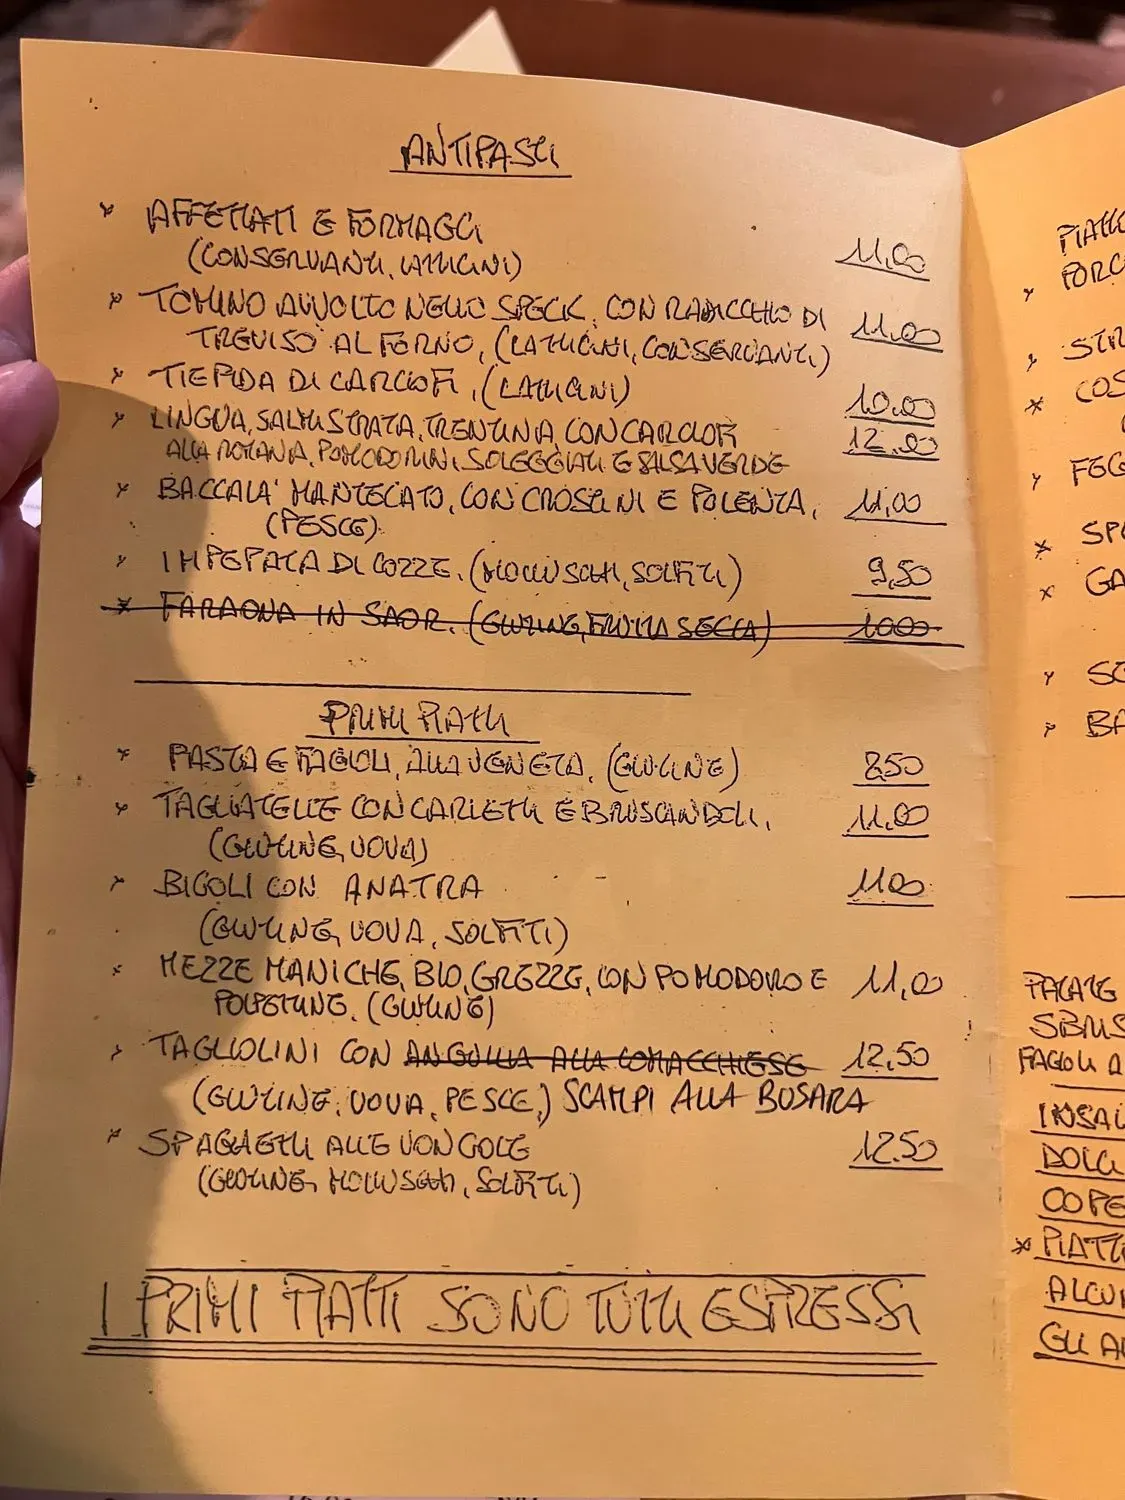 ANTIPASTI
* AFFETTATI E FORMAGGI
(CONSERVANTI, LATTICINI) 11,00
* TOMINO AVVOLTO NELLO SPECK, CON RADICCHIO DI
TREVISO AL FORNO, (LATTICINI, CONSERVANTI) 11,00
* TIEPIDA DI CARCIOFI, (LATTICINI) 10,00
* LINGUA, SALMISTRATA, TRENTINA, CON CARCIOFI 12,00
ALLA ROMANA, POMODORINI, SOLEGGIATI E SALSA VERDE
* BACCALA' MANTECATO, CON CROSTINI E POLENTA, 11,00
(PESCE)
* IMPEPATA DI COZZE, (MOLLUSCHI, SOLFITI) 9,50
* FARAONA IN SAOR. (GLUTINE, FRUTTA SECCA) 10,00
PRIMI PIATTI
* PASTA E FAGIOLI, ALLA VENETA, (GLUTINE) 8,50
* TAGLIATELLE CON CARLETTI E BRUSCANDOLI, 11,00
(GLUTINE, UOVA)
* BIGOLI CON ANATRA 11,00
(GLUTINE, UOVA, SOLFITI)
* MEZZE MANICHE, BIO, GREZZE, CON POMODORO E 11,00
POLPETTINE, (GLUTINE)
* TAGLIOLINI CON ANGUILLA ALLA COMACCHIESE 12,50
(GLUTINE, UOVA, PESCE,) SCAMPI ALLA BUSARA
* SPAGHETTI ALLE VONGOLE 12.50
(GLUTINE, MOLLUSCHI, SOLFITI)
I PRIMI PIATTI SONO TUTTI ESPRESSI
* PORC
* STR
* COS
* FEG
* SP
* GA
* SC
* BA
PATATE
SBRIS
FAGIOLI A
INSAL
DOLCI
COPE
* PIATTI
ALCUN
GLI A